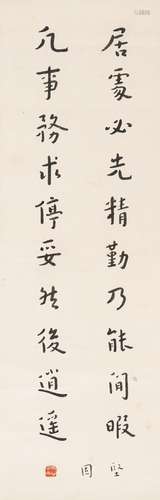 居處必先精勤乃能閒暇
凡事務求停妥然後逍遥
堅固